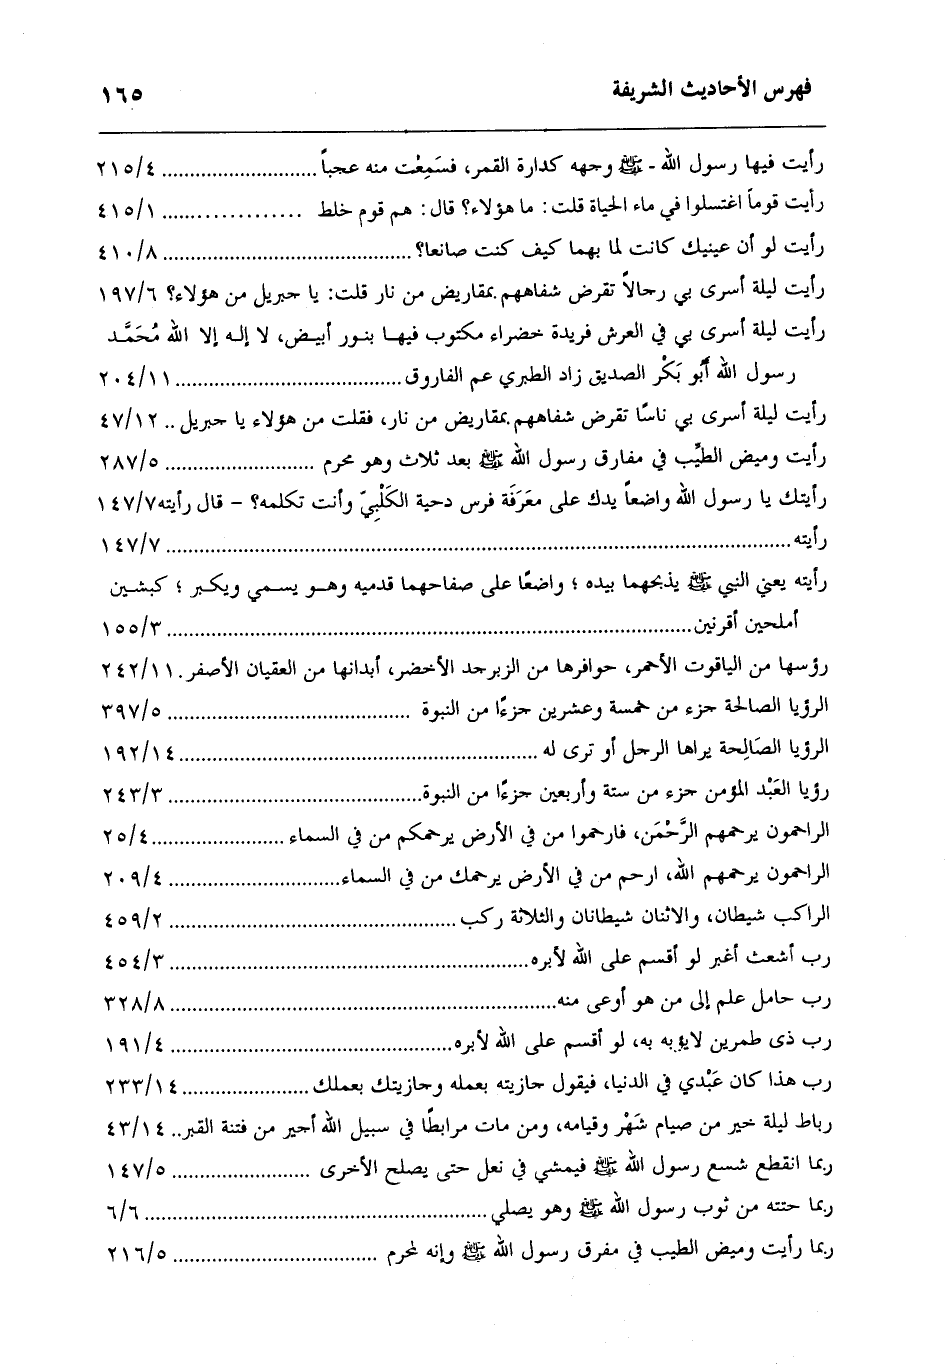 فهرس الأحاديث الشريفة ١٦٥
رأيت فيها رسول الله - ﷺ وجهه كدارة القمر، فسَمِعْت منه عجباً ............................ ٢١٥/٤
رأيت قوماً اغتسلوا في ماء الحياة قلت: ما هؤلاء؟ قال: هم قوم خلط ........................ ٤١٥/١
رأيت لو أن عينيك كانت لما بهما كيف كنت صانعا؟ ............................................. ٤١٠/٨
رأيت ليلة أسرى بي رحالاً تقرض شفاههم بمقاريض من نار قلت: يا حبريل من هؤلاء؟ ١٩٧/٦
رأيت ليلة أسرى بي في العرش فريدة خضراء مكتوب فيها بنور أبيض، لا إله إلا الله مُحَمَّد
رسول الله أَبُو بَكْر الصديق زاد الطبري عم الفاروق ......................................... ٢٠٤/١١
رأيت ليلة أسرى بي ناسًا تقرض شفاههم بمقاريض من نار، فقلت من هؤلاء يا حبريل .. ٤٧/١٢
رأيت وميض الطيِّب في مفارق رسول الله ﷺ بعد ثلاث وهو محرم ........................... ٢٨٧/٥
رأيتك يا رسول الله واضعاً يدك على معَرَفَة فرس دحية الكَلْبِيّ وأنت تكلمه؟ - قال رأيته ١٤٧/٧
رأيته ................................................................................................................ ١٤٧/٧
رأيته يعني النبي ﷺ يذبحهما بيده ؛ واضعًا على صفاحهما قدميه وهو يسمي ويكبر ؛ كبشين
أملحين أقرنين ............................................................................................... ١٥٥/٣
رؤسها من الياقوت الأحمر، حوافرها من الزبرحد الأخضر، أبدانها من العقيان الأصفر. ٢٤٢/١١
الرؤيا الصالحة حزء من خمسة وعشرين حزءًا من النبوة ............................................ ٣٩٧/٥
الرؤيا الصَالِحة يراها الرحل أو ترى له ................................................................. ١٩٢/١٤
رؤيا العَبْد المؤمن حزء من ستة وأربعين حزءًا من النبوة .............................................. ٢٤٣/٣
الراحمون يرحمهم الرَّحْمَن، فارحموا من في الأرض يرحمكم من في السماء ........................ ٢٥/٤
الراحمون يرحمهم الله، ارحم من في الأرض يرحمك من في السماء ............................... ٢٠٩/٤
الراكب شيطان، والاثنان شيطانان والثلاثة ركب .................................................... ٤٥٩/٢
رب أشعث أغبر لو أقسم على الله لأبره ................................................................. ٤٥٤/٣
رب حامل علم إلى من هو أوعى منه ...................................................................... ٣٢٨/٨
رب ذى طمرين لايؤبه به، لو أقسم على الله لأبره ................................................... ١٩١/٤
رب هذا كان عَبْدي في الدنيا، فيقول حازيته بعمله وحازيتك بعملك ....................... ٢٣٣/١٤
رباط ليلة خير من صيام شَهْر وقيامه، ومن مات مرابطًا في سبيل الله أحير من فتنة القبر.. ٤٣/١٤
ربما انقطع شسع رسول الله ﷺ فيمشي في نعل حتى يصلح الأخرى ......................... ١٤٧/٥
ربما حتته من ثوب رسول الله ﷺ وهو يصلي .............................................................. ٦/٦
ربما رأيت وميض الطيب في مفرق رسول الله ﷺ وإنه لمحرم ..................................... ٢١٦/٥